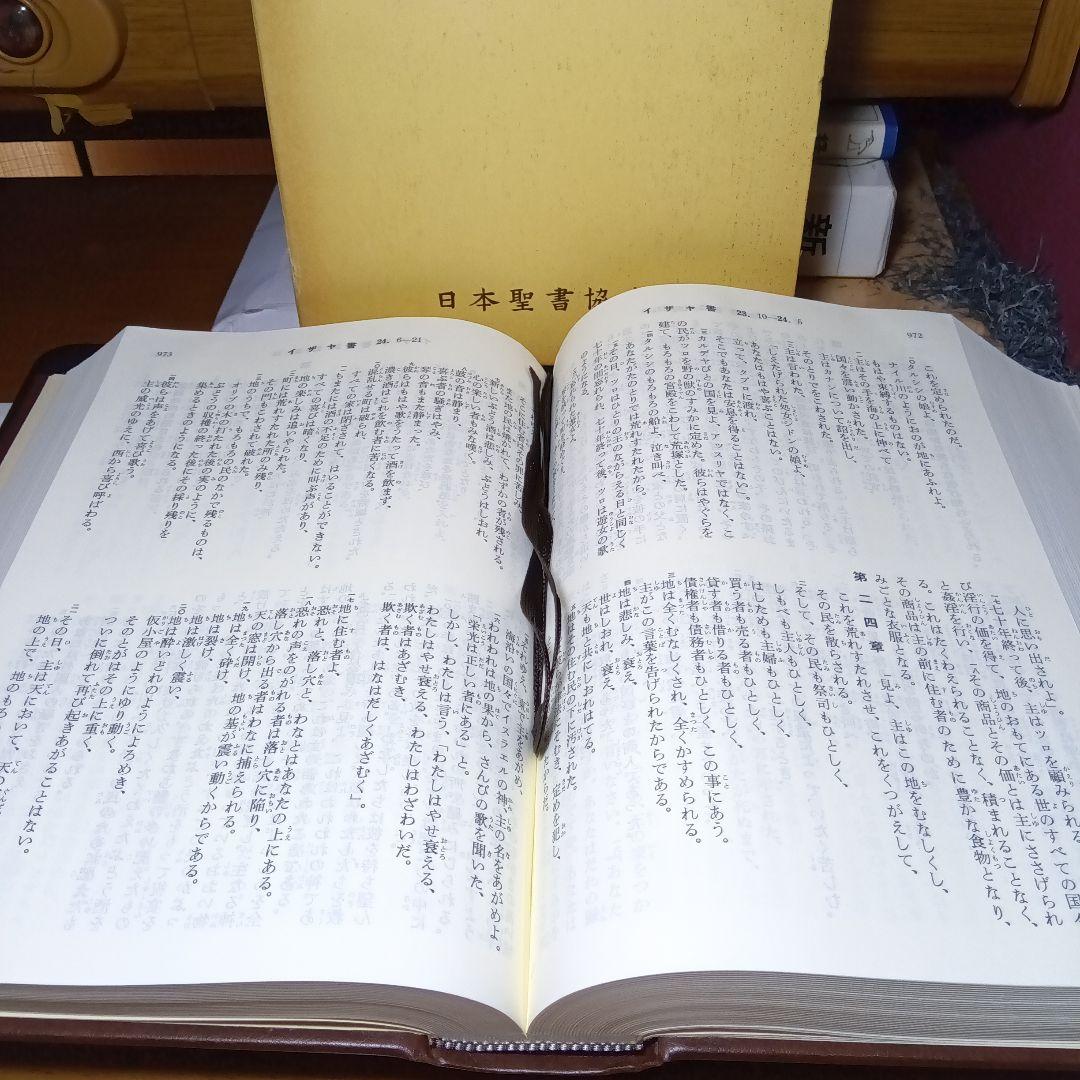 日本聖書協
新
イザヤ書 23. 10―24. 5
972
これを定められたのだ。
タルシシの娘よ、
ナイル川のようにおのが地にあふれよ。
もはや束縛するものはない。
主はその手を海の上に伸べて
国々を震い動かされた。
主はカナンについて詔を出し、
そのとりでをこわされた。
主は言われた、
「しえたげられた処女シドンの娘よ、
あなたはもはや喜ぶことはない。
立って、クプロに渡れ、
そこでもあなたは安息を得ることはない」。
カルデヤびとの国を見よ、アッスリヤではなく、こ
の民がツロを野の獣のすみかに定めた。彼らはやぐらを
建て、もろもろの宮殿をこわして荒塚とした。
タルシシのもろもろの船よ、泣き叫べ、
あなたがたのとりでは荒れすたれたから。
その日、ツロはひとりの王のながらえる日と同じく
七十年の間忘れられ、七十年終って後、ツロは遊女の歌
人に思い出されよ」。
七十年終って後、主はツロを顧みられる。
び淫行の価を得て、地のおもてにある世のすべての国
と姦淫を行い、その商品とその価とは主にささげられ
る。これはたくわえられることなく、積まれることなく、
その商品は主の前に住む者のために豊かな食物となり、
みごとな衣服となる。
第二四章
見よ、主はこの地をむなしくし、
これを荒れすたれさせ、これをくつがえして、
その民を散らされる。
そして、その民も祭司もひとしく、
しもべも主人もひとしく、
はしためも主婦もひとしく、
買う者も売る者もひとしく、
貸す者も借りる者もひとしく、
債権者も債務者もひとしく、この事にあう。
地は全くむなしくされ、全くかすめられる。
主がこの言葉を告げられたからである。
地は悲しみ、衰え、
世はしおれ、衰え、
天も地と共にしおれはてる。
地はその住む民の下に汚された。
イザヤ書 24. 6―21
973
そこに住む者はその罪に苦しみ、
また地の民は焼かれて、わずかの者が残される。
新しいぶどう酒は悲しみ、ぶどうはしおれ、
心の楽しい者もみな嘆く。
鼓の音は静まり、
喜ぶ者の騒ぎはやみ、
琴の音もまた静まった。
彼らはもはや歌をうたって酒を飲まず、
濃き酒はこれを飲む者に苦くなる。
混乱せる町は破られ、
すべての家は閉ざされて、はいることができない。
ちまたには酒の不足のために叫ぶ声があり、
すべての喜びは暗くなり、
地の楽しみは追いやられた。
町には荒れすたれた所のみ残り、
その門もこわされて破れた。
地のうちで、もろもろの民のなかで残るものは、
オリブの木の打たれた後の実のように、
ぶどうの収穫の終った後にその採り残りを
集めるときのようになる。
彼らは声をあげて喜び歌う。
主の威光のゆえに、西から喜び呼ばわる。
それゆえ、東で主をあがめ、
海沿いの国々でイスラエルの神、主の名をあがめよ。
われわれは地の果から、さんびの歌を聞いた、
「栄光は正しい者にある」と。
しかし、わたしは言う、「わたしはやせ衰える、
わたしはやせ衰える、わたしはわざわいだ。
欺く者はあざむき、
欺く者は、はなはだしくあざむく」。
地に住む者よ、
恐れと、落し穴と、わなとはあなたの上にある。
恐れの声をのがれる者は落し穴に陥り、
落し穴から出る者はわなに捕えられる。
天の窓は開け、地の基が震い動くからである。
地は全く砕け、
地は裂け、
地は激しく震い、
地は酔いどれのようによろめき、
仮小屋のようにゆり動く。
そのとがはその上に重く、
ついに倒れて再び起きあがることはない。
その日、主は天において、
地の上で、地のもろ